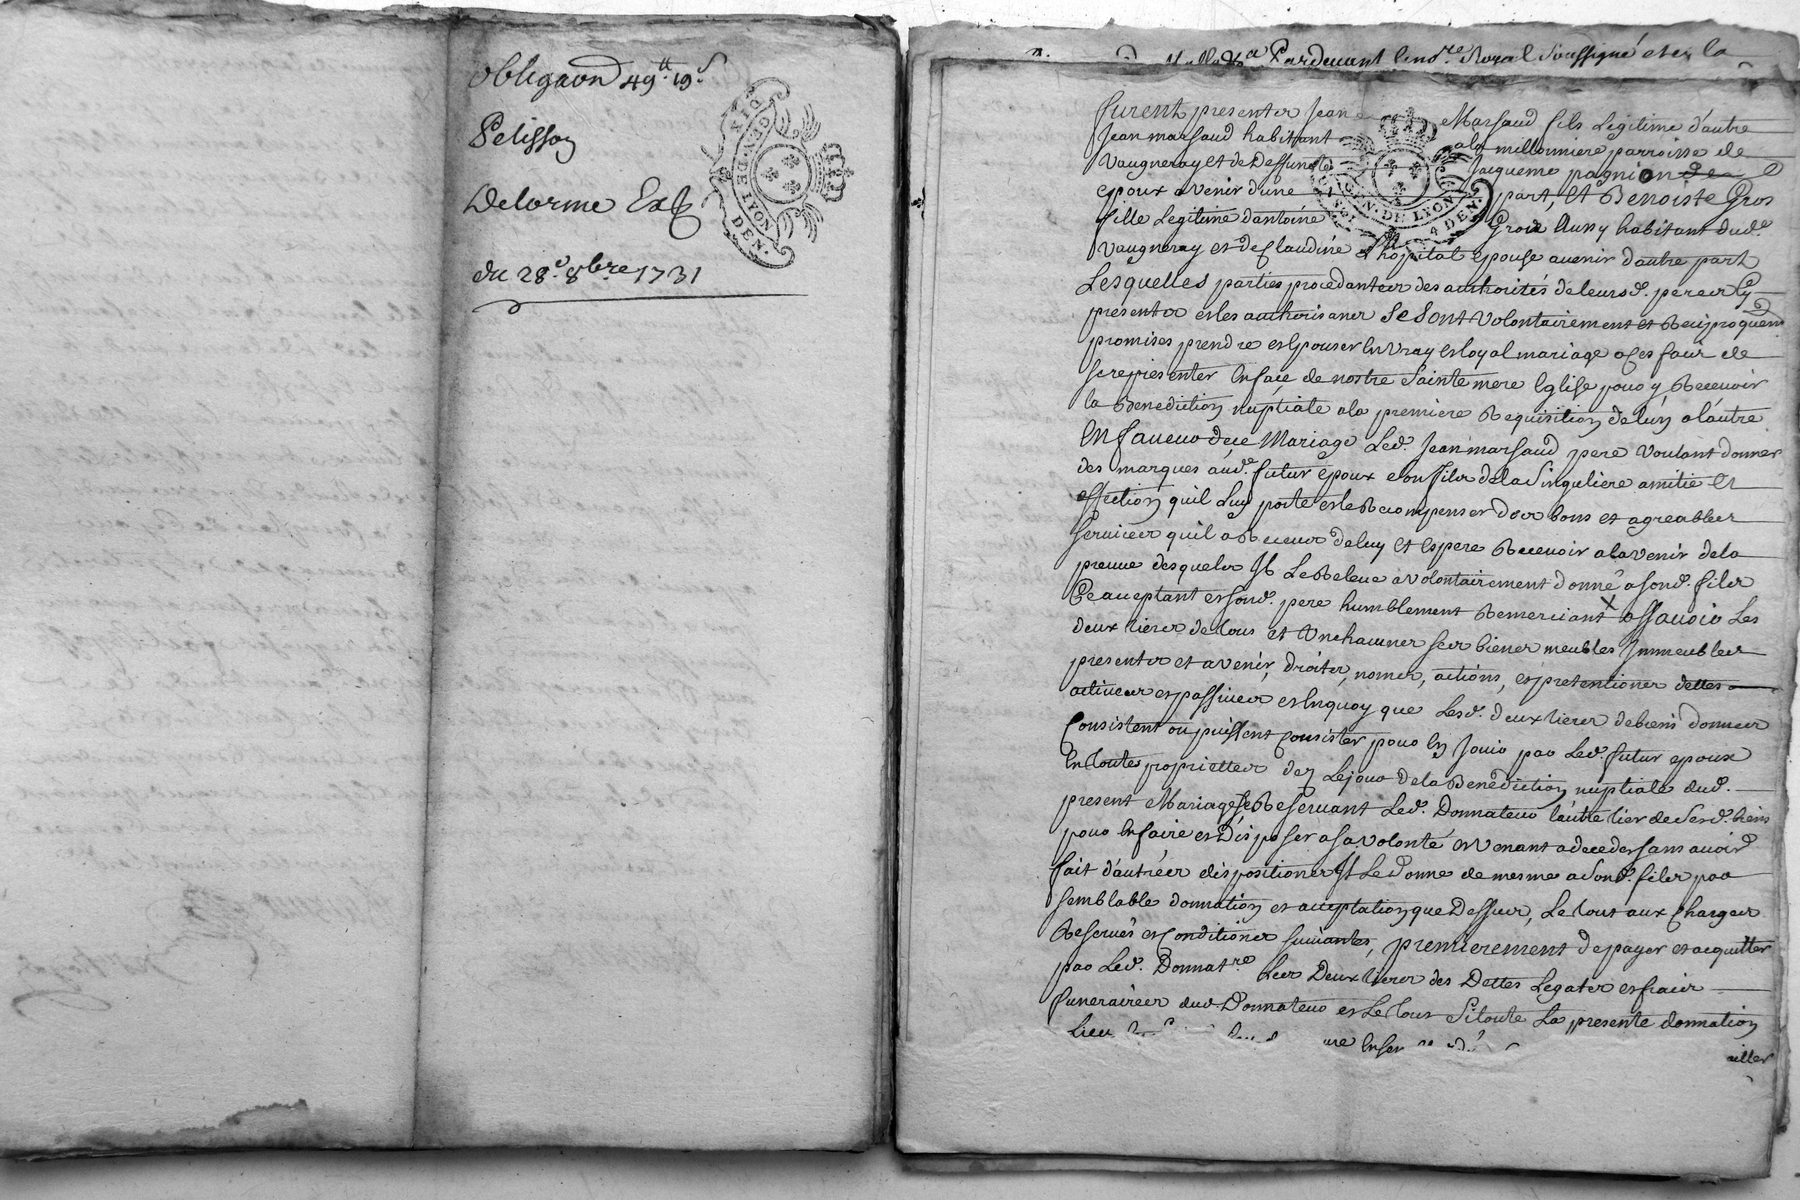 obligaon 49.tt 19.s
Pelisson
Delorme Exp
du 28.e 8bre 1731
GEN. DE LYON
DEN.
Pardevant le no.re Royal soussigné et en la
furent presenter Jean Marsaud fils Legitime d'autre
Jean marsaud habitant ala millonniere parroisse de
Vaugneray et de Deffuncte Jaqueme pagnion de
epoux avenir d'une part, Et Benoiste Gros
fille Legitime d'antoine Groie Aussy habitant dud.
Vaugneray et de Claudine L'hopital epouse avenir d'autre part
Lesquelles parties procedanter des authorités de leursd. perer Cy
presenter et les authorisaner Se Sont Volontairement et Reciproquem
promises prendre et Epouser En Vray et loyal mariage a ces fair de
se representer En face de nostre Sainte mere Eglise pour y Recevoir
la Benediction nuptiale ala premiere Requisition de l'un a l'autre
En faveur de ce Mariage Led. Jean marsaud pere voulant donner
des marques aud. futur epoux son filz de la Singuliere amitie Et
affection quil Luy porte et le Recompenser der bons et agreabler
servicer quil a Receur de luy Et espere Recevoir a lavenir dela
preuve desqueler Il Le Releve a volontairement donné a sond. filz
Ce aceptant et sond. pere humblement Remerciant X assavoir Les
deux tierer de tous et Unchauner ser biener meubles Immeubler
presenter et avenir, droiter, nomer, actions, et pretentioner dettes
activeer et passiveer et Enquoy que Lesd. deux tierer de biens donneer
Consistent ou puissent Consister pour En Jouir par Led. futur epoux
En toutes proprietter dez Lejour de la Benediction nuptiale dud.
present Mariage Se Reservant Led. Donnateur l'autre tier de Sesd. biens
pour En faire et Disposer a sa volonté et venant a deceder sans avoir
fait d'autreer dispositioner Il Le Donne de mesme a Sond. filz par
semblable donnation et acceptation que Dessuer, Le tout aux Charger
Reservés et Conditioner suivantes, premierement de payer et acquitter
par Led. Donnat.re Leer Deux tierer des Dettes Legater et fraier
funeraireer dud. Donnateur et Le tour Sitoute La presente donnation
Lieu
ailler